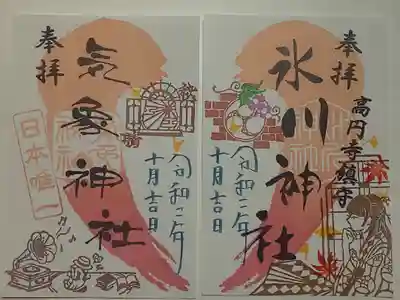 奉拝
気象神社
日本唯一
晴
令和二年
十月吉日
奉拝
氷川神社
高円寺鎮守
令和二年
十月吉日